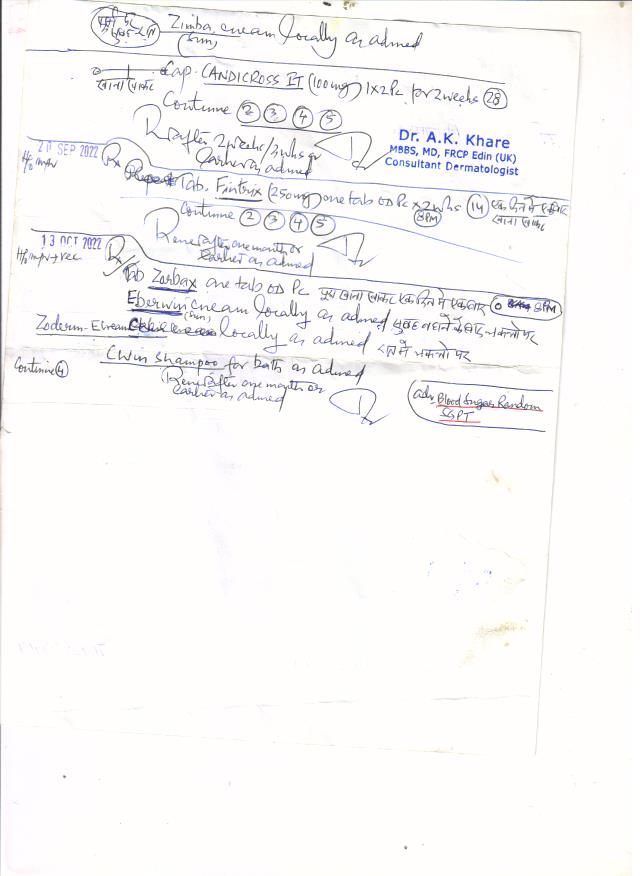 Zimba cream locally as advised
(5gm)
Cap. CANDICROSS IT (100mg) 1x2 Pc for 2 weeks (28)
खाना खाकर
Continue ② ③ ④ ⑤
R after 2 weeks/3 wks or
Earlier as advised
Dr. A.K. Khare
MBBS, MD, FRCP Edin (UK)
Consultant Dermatologist
SEP 2022
Rx Tab. Fintrix (250mg) one tab OD Pc x 2 wks (14) एक दिन में एकबार
8PM खाना खाकर
Continue ② ③ ④ ⑤
Renew after one month or
Earlier as advised
13 OCT 2022
Rx
Tab Zorbax one tab OD Pc खाना खाकर एक दिन में एकबार 8PM
Eberwin cream locally as advised सुबह नहाने के बाद
Zoderm-E cream locally as advised रात में
Cwin shampoo for bath as advised
Continue ④
Renew after one month or
Earlier as advised
adv. Blood Sugar Random
SGPT